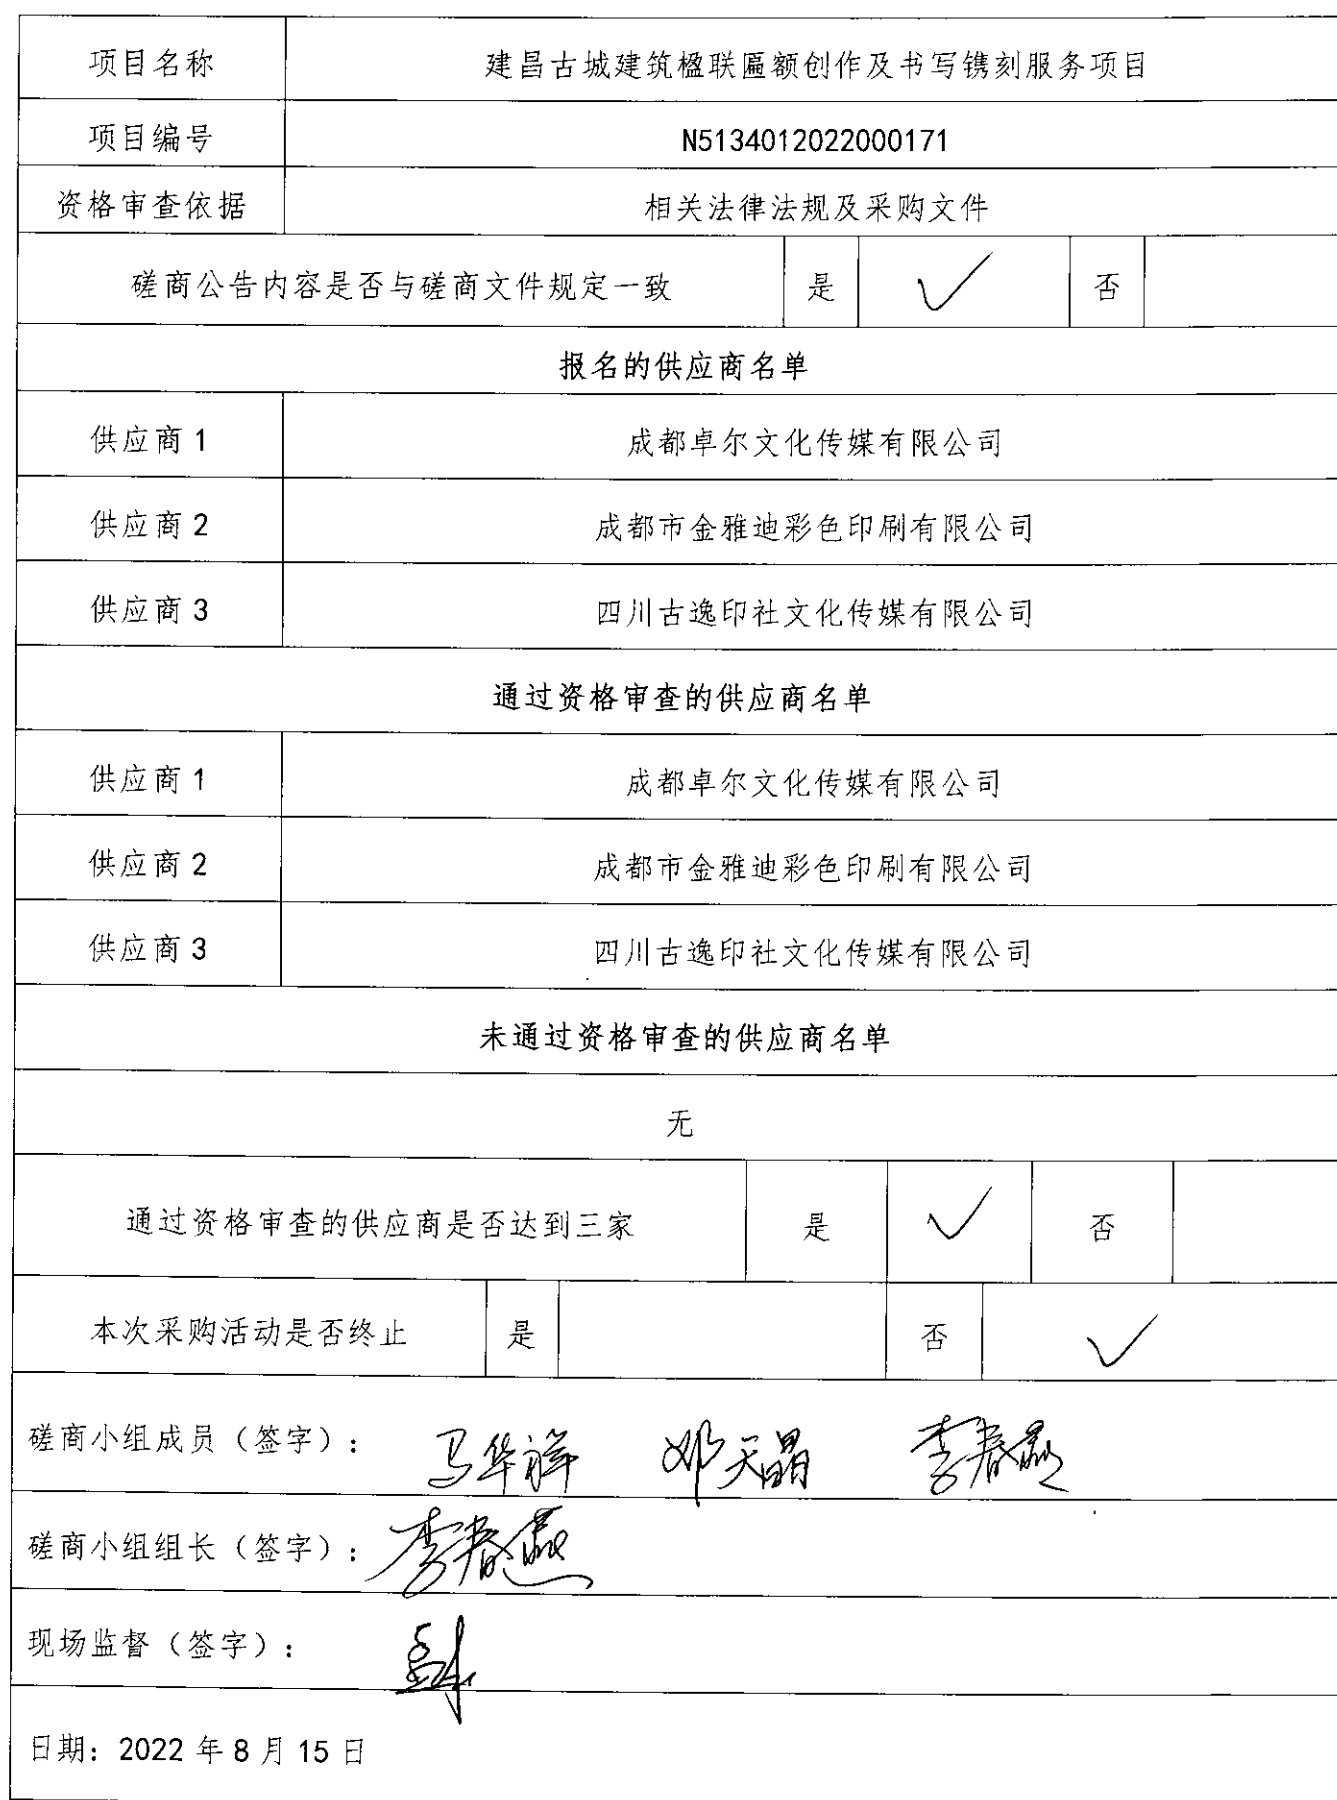 项目名称 建昌古城建筑楹联匾额创作及书写镌刻服务项目
项目编号 N5134012022000171
资格审查依据 相关法律法规及采购文件
磋商公告内容是否与磋商文件规定一致 是 ✓ 否
报名的供应商名单
供应商 1 成都卓尔文化传媒有限公司
供应商 2 成都市金雅迪彩色印刷有限公司
供应商 3 四川古逸印社文化传媒有限公司
通过资格审查的供应商名单
供应商 1 成都卓尔文化传媒有限公司
供应商 2 成都市金雅迪彩色印刷有限公司
供应商 3 四川古逸印社文化传媒有限公司
未通过资格审查的供应商名单
无
通过资格审查的供应商是否达到三家 是 ✓ 否
本次采购活动是否终止 是 否 ✓
磋商小组成员（签字）： 马华祥 邓天晶 李春燕
磋商小组组长（签字）： 李春燕
现场监督（签字）：
日期：2022 年 8 月 15 日